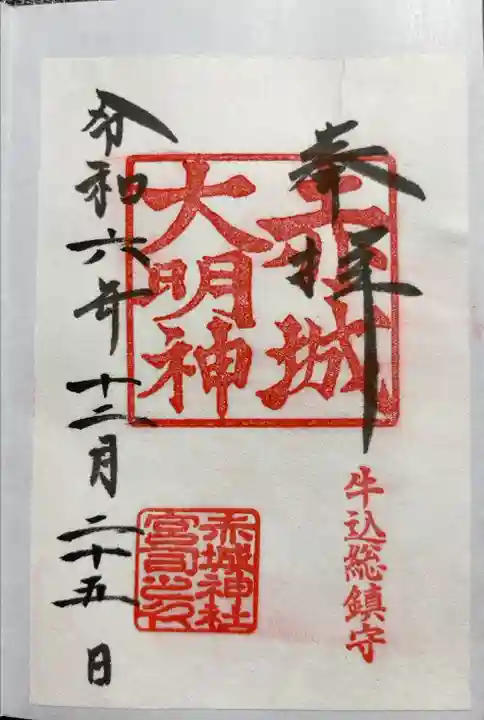 奉拝
赤城
大明神
牛込総鎮守
赤城神社
宮司之印
令和六年十二月二十五日